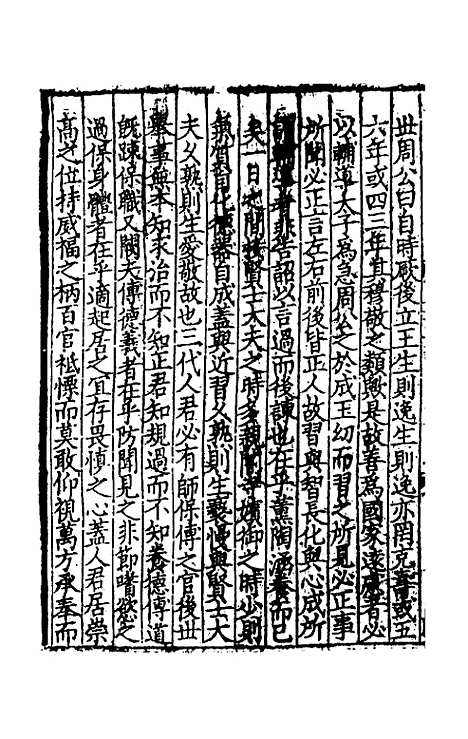 世周公曰自時厥後立王生則逸生則逸亦罔克壽或五
六年或四三年是故善為國家遠慮者必
以輔導太子為急周公之於成王幼而習之所見必正事
所聞必正言左右前後皆正人故習與智長化與心成所
謂輔導者非告詔以言過而後諫也在乎薰陶涵養而已
矣一日之間接賢士大夫之時多親關寺嬪御之時少則
氣質自化德器自成蓋與近習久熟則生褻慢與賢士大
夫久熟則生愛敬故也三代人君必有師保傅之官後世
舉事無本知求治而不知正君知規過而不知養德傅道
既踈保職又闕夫傅德義者在乎防聞見之非節嗜慾之
過保身體者在乎適起居之宜存畏慎之心蓋人君居崇
高之位持威福之柄百官祇慄而莫敢仰視萬方承奉而